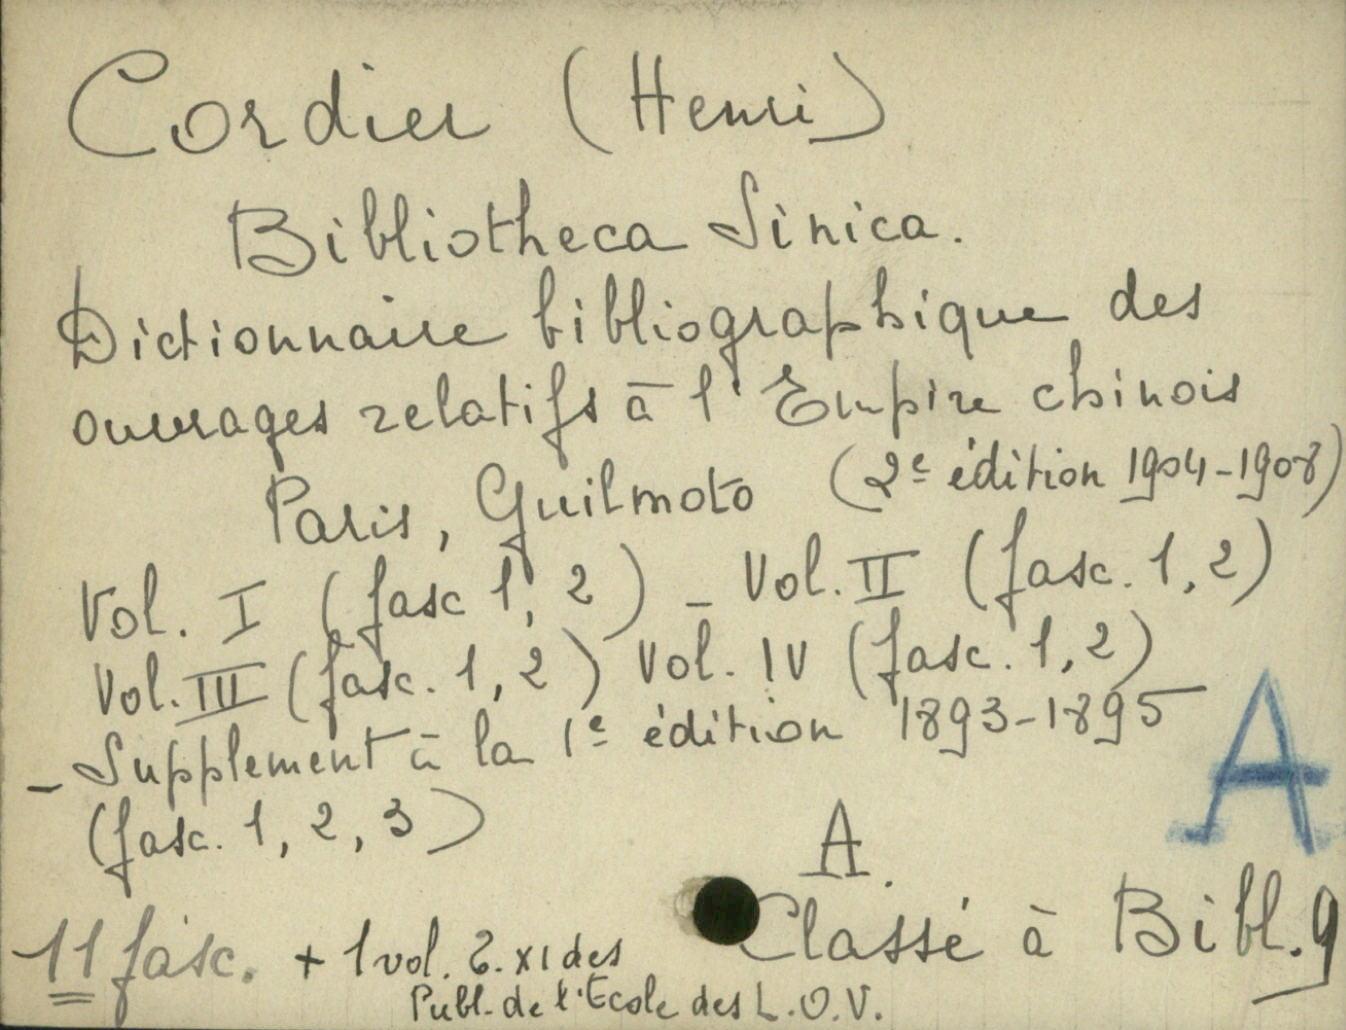 Cordier (Henri)
Bibliotheca Sinica.
Dictionnaire bibliographique des
ouvrages relatifs à l'Empire chinois
Paris, Guilmoto (2e édition 1904-1908)
Vol. I (fasc 1, 2) - Vol. II (fasc. 1, 2)
Vol. III (fasc. 1, 2) Vol. IV (fasc. 1, 2)
- Supplement à la 1e édition 1893-1895
(fasc. 1, 2, 3)
A
A.
Classé à Bibl. 9
11 fasc. + 1 vol. T. XI des
Publ. de l'Ecole des L.O.V.